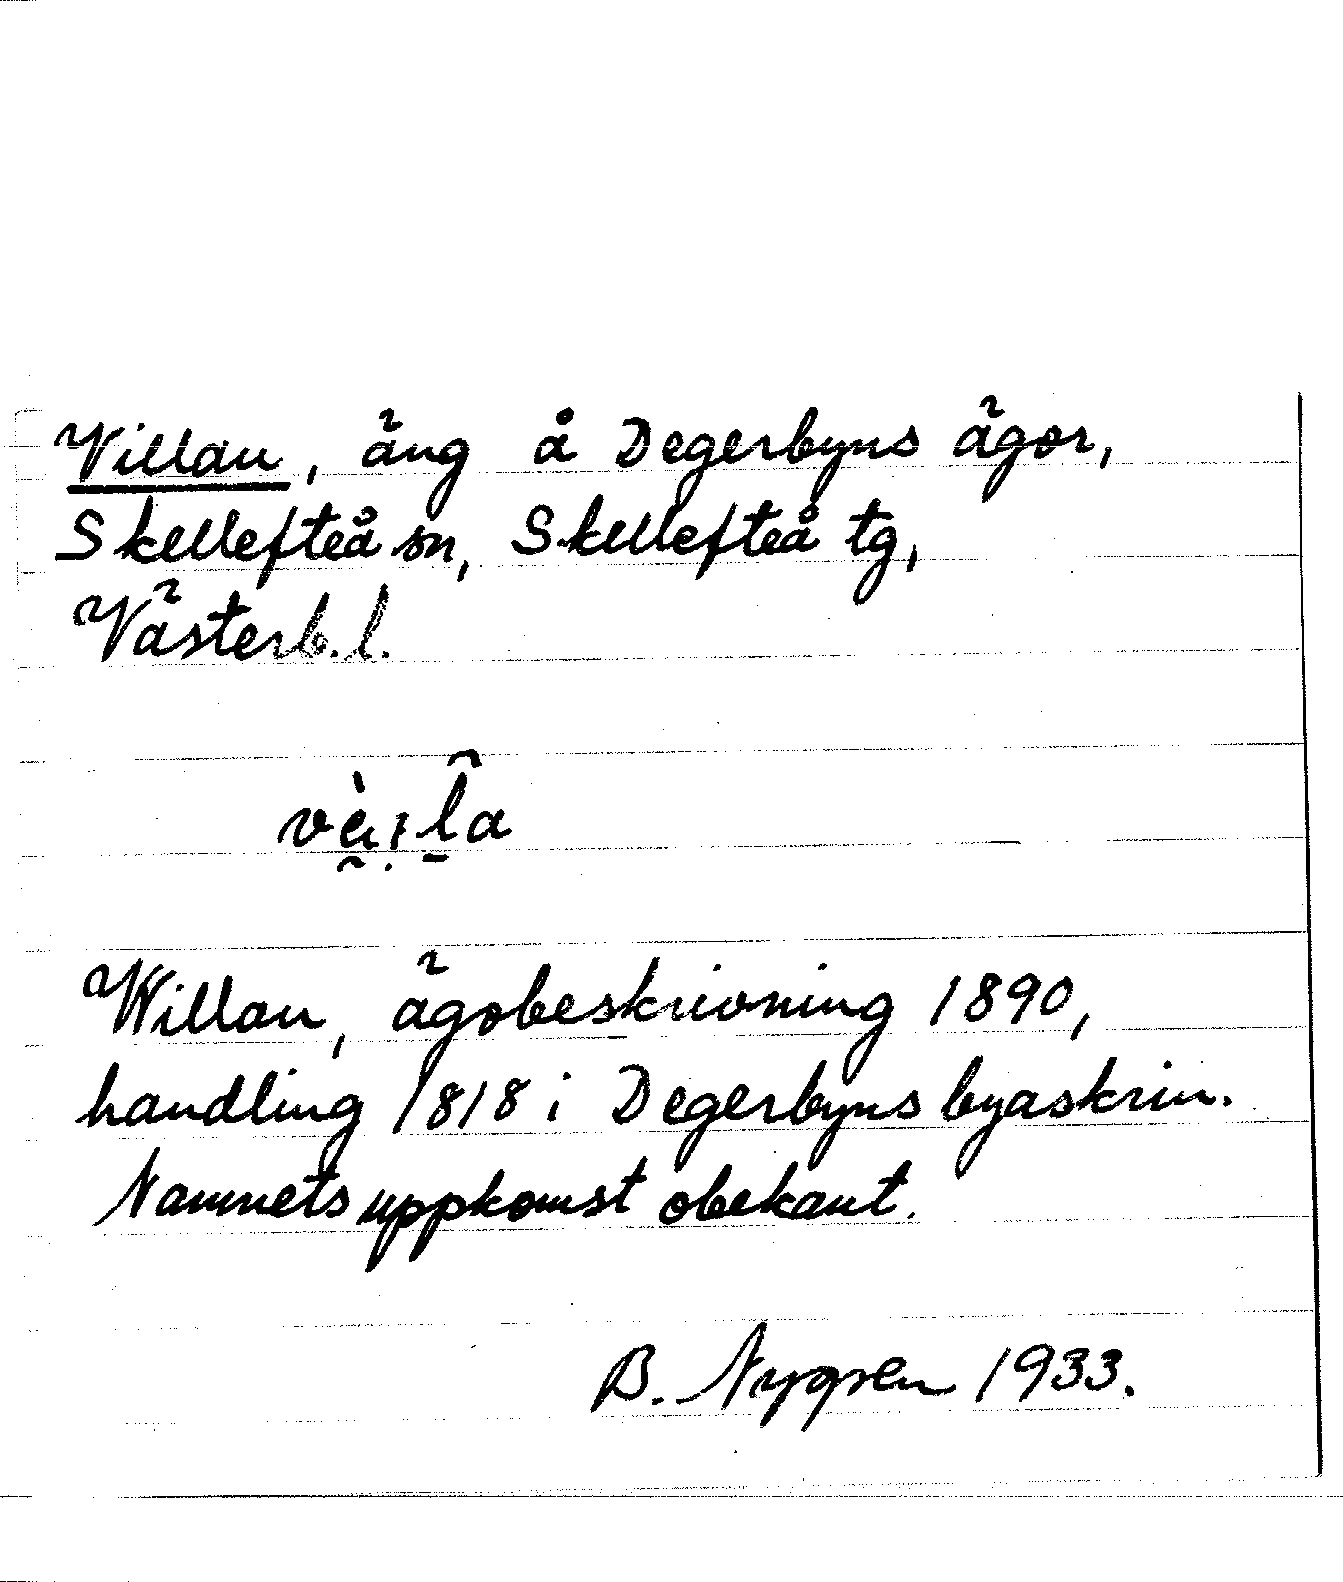 Villan, äng å Degerbyns ägor,
Skellefteå sn, Skellefteå tg,
Västerb. l.
Willan, ägobeskrivning 1890,
handling 1818 i Degerbyns byaskrin.
Namnets uppkomst obekant.
B. Nygren 1933.